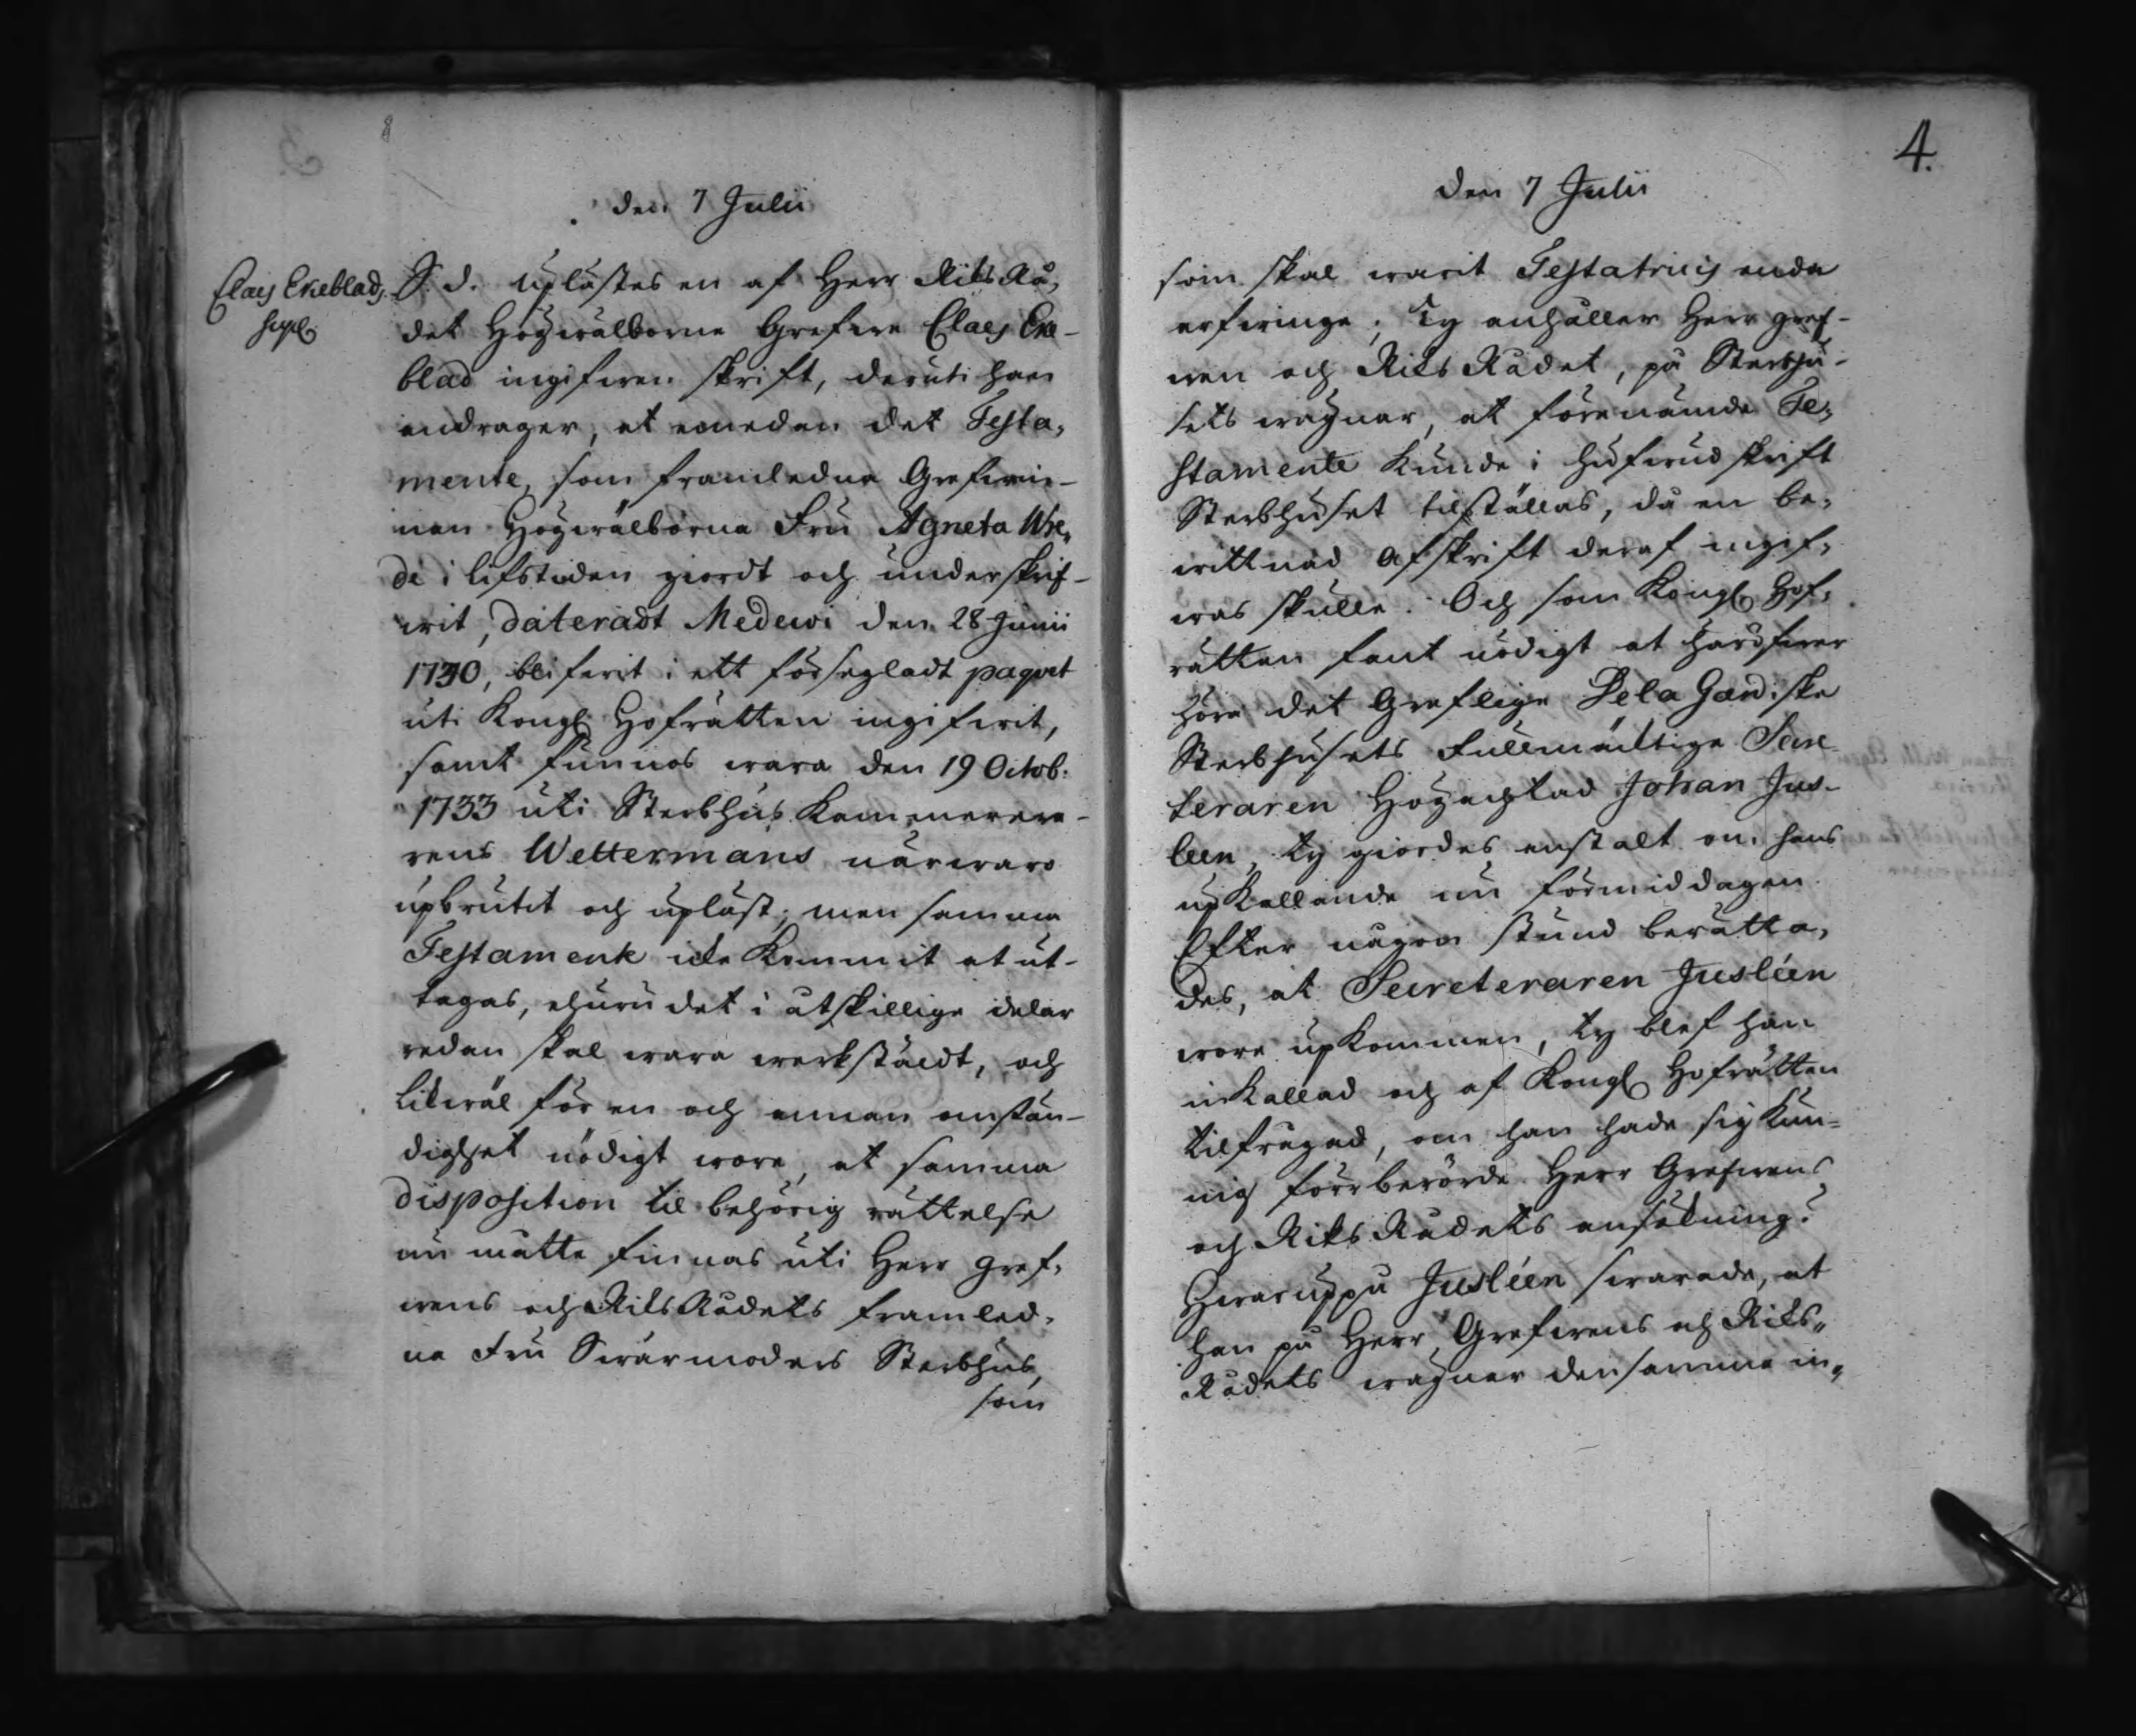 den 7 Julii
Claes Ekeblads
suppl.
S. d. uplästes en af Herr Riks Rå-
det Högwälborne Grefwe Claes Eke-
blad ingifwen skrift, deruti han
andrager, at emedan det Testa-
mente, som framledna Grefwin-
nan Högwälborna Fru Agneta Wre-
de i lifstiden giordt och underskrif-
wit, dateradt Medewi den 28 Junii
1730, blifwit i ett försegladt paquet
uti Kongl. Hofrätten ingifwit,
samt funnos wara den 19 Octob:
1733 uti Sterbhus Kammererer-
rens Wettermans närwaro
upbrutit och upläst; men samma
Testamente icke kommit at ut-
tagas, ehuru det i åtskillige delar
redan skal wara werkstäldt, och
likwäl för en och annan omstän-
dighet nödigt wore, at samma
disposition til behörig rättelse
nu måtte finnas uti Herr Gref-
wens och Riks Rådets framled-
na Fru Swärmoders Sterbhus,
som
4.
den 7 Julii
som skal warit Testatricis enda
arfwinge; Ty anhåller Herr Gref-
wen och Riks Rådet, på Sterbhu-
sets wägnar, at förenämde Te-
stamente kunde i hufwudskrift
Sterbhuset tilställas, då en be-
wittnad afskrift deraf ingif-
was skulle. Och som Kongl. Hof-
rätten fant nödigt at häröfwer
höra det Greflige De la Gardiske
Sterbhusets Fullmäktige Secre-
teraren Högachtad Johan Jus-
léen, ty giordes anstalt om hans
upkallande nu förmiddagen.
Efter någon stund berätta-
des, at Secreteraren Jusléen
wore upkommen, ty blef han
inkallad och af Kongl. Hofrätten
tilfrågad, om han hade sig kun-
nig förrberörde Herr Grefwens
och Riks Rådets ansökning?
Hwaruppå Jusléen swarade, at
han på Herr Grefwens och Riks-
Rådets wägnar densamma in-